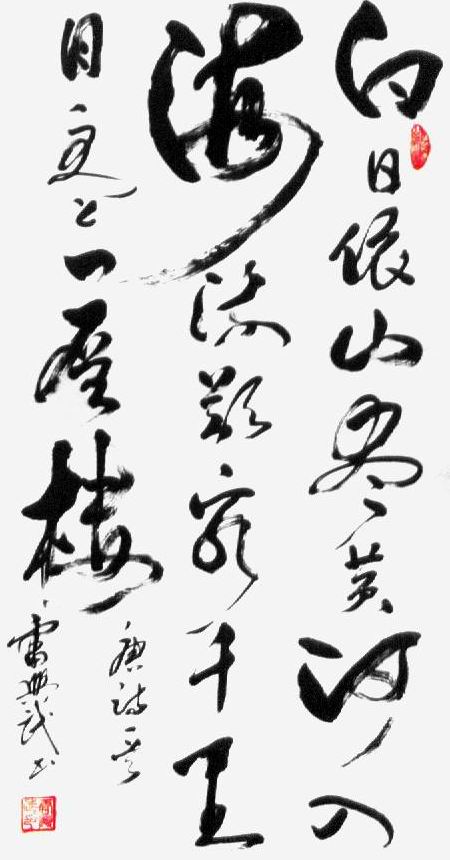 白日依山尽黄河入
海流欲穷千里
目更上一层楼
唐诗一首